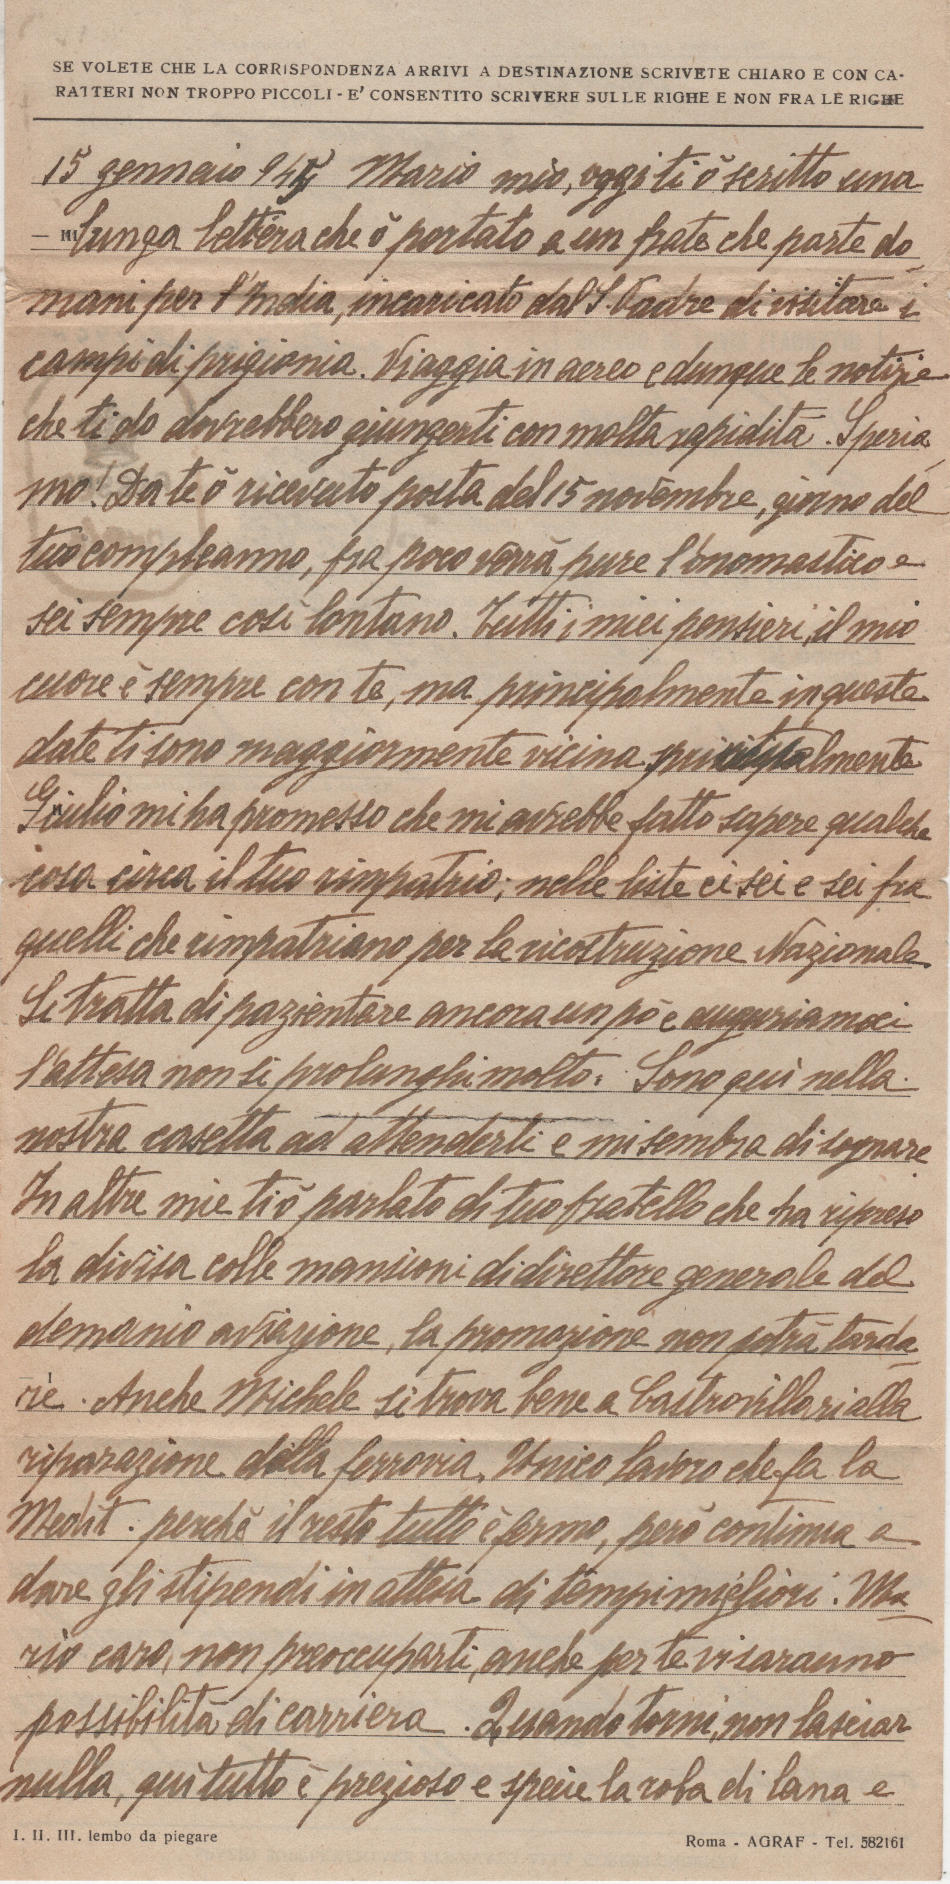 SE VOLETE CHE LA CORRISPONDENZA ARRIVI A DESTINAZIONE SCRIVETE CHIARO E CON CA-
RATTERI NON TROPPO PICCOLI - E' CONSENTITO SCRIVERE SULLE RIGHE E NON FRA LE RIGHE
15 gennaio 945 Mario mio, oggi ti ò scritto una
lunga lettera che ò portato a un frate che parte do
mani per l'India, incaricato dal S. Padre di visitare i
campi di prigionia. Viaggia in aereo e dunque le notizie
che ti do dovrebbero giungerti con molta rapidità. Speria
mo! Da te ò ricevuto posta del 15 novembre, giorno del
tuo compleanno, fra poco verrà pure l'onomastico e
sei sempre così lontano. Tutti i miei pensieri, il mio
cuore è sempre con te, ma principalmente in queste
date ti sono maggiormente vicina
Giulio mi ha promesso che mi avrebbe fatto sapere qualche
cosa circa il tuo rimpatrio; nelle liste ci sei e sei fra
quelli che rimpatriano per la ricostruzione Nazionale
Si tratta di pazientare ancora un pò e auguriamoci
l'attesa non si prolunghi molto. Sono quì nella
nostra casetta ad attenderti e mi sembra di sognare
In altre mie ti ò parlato di tuo fratello che ha ripreso
la divisa colle mansioni di direttore generale del
demanio aviazione, la promozione non potrà tarda
re. Anche Michele si trova bene a Castrovillari alla
riparazione della ferrovia. Unico lavoro che fa la
Medit. perchè il resto tutto è fermo, però continua a
dare gli stipendi in attesa di tempi migliori. Ma
rio caro, non preoccuparti, anche per te vi saranno
possibilità di carriera. Quando torni, non lasciar
nulla, quì tutto è prezioso e specie la roba di lana e
I. II. III. lembo da piegare
Roma - AGRAF - Tel. 582161